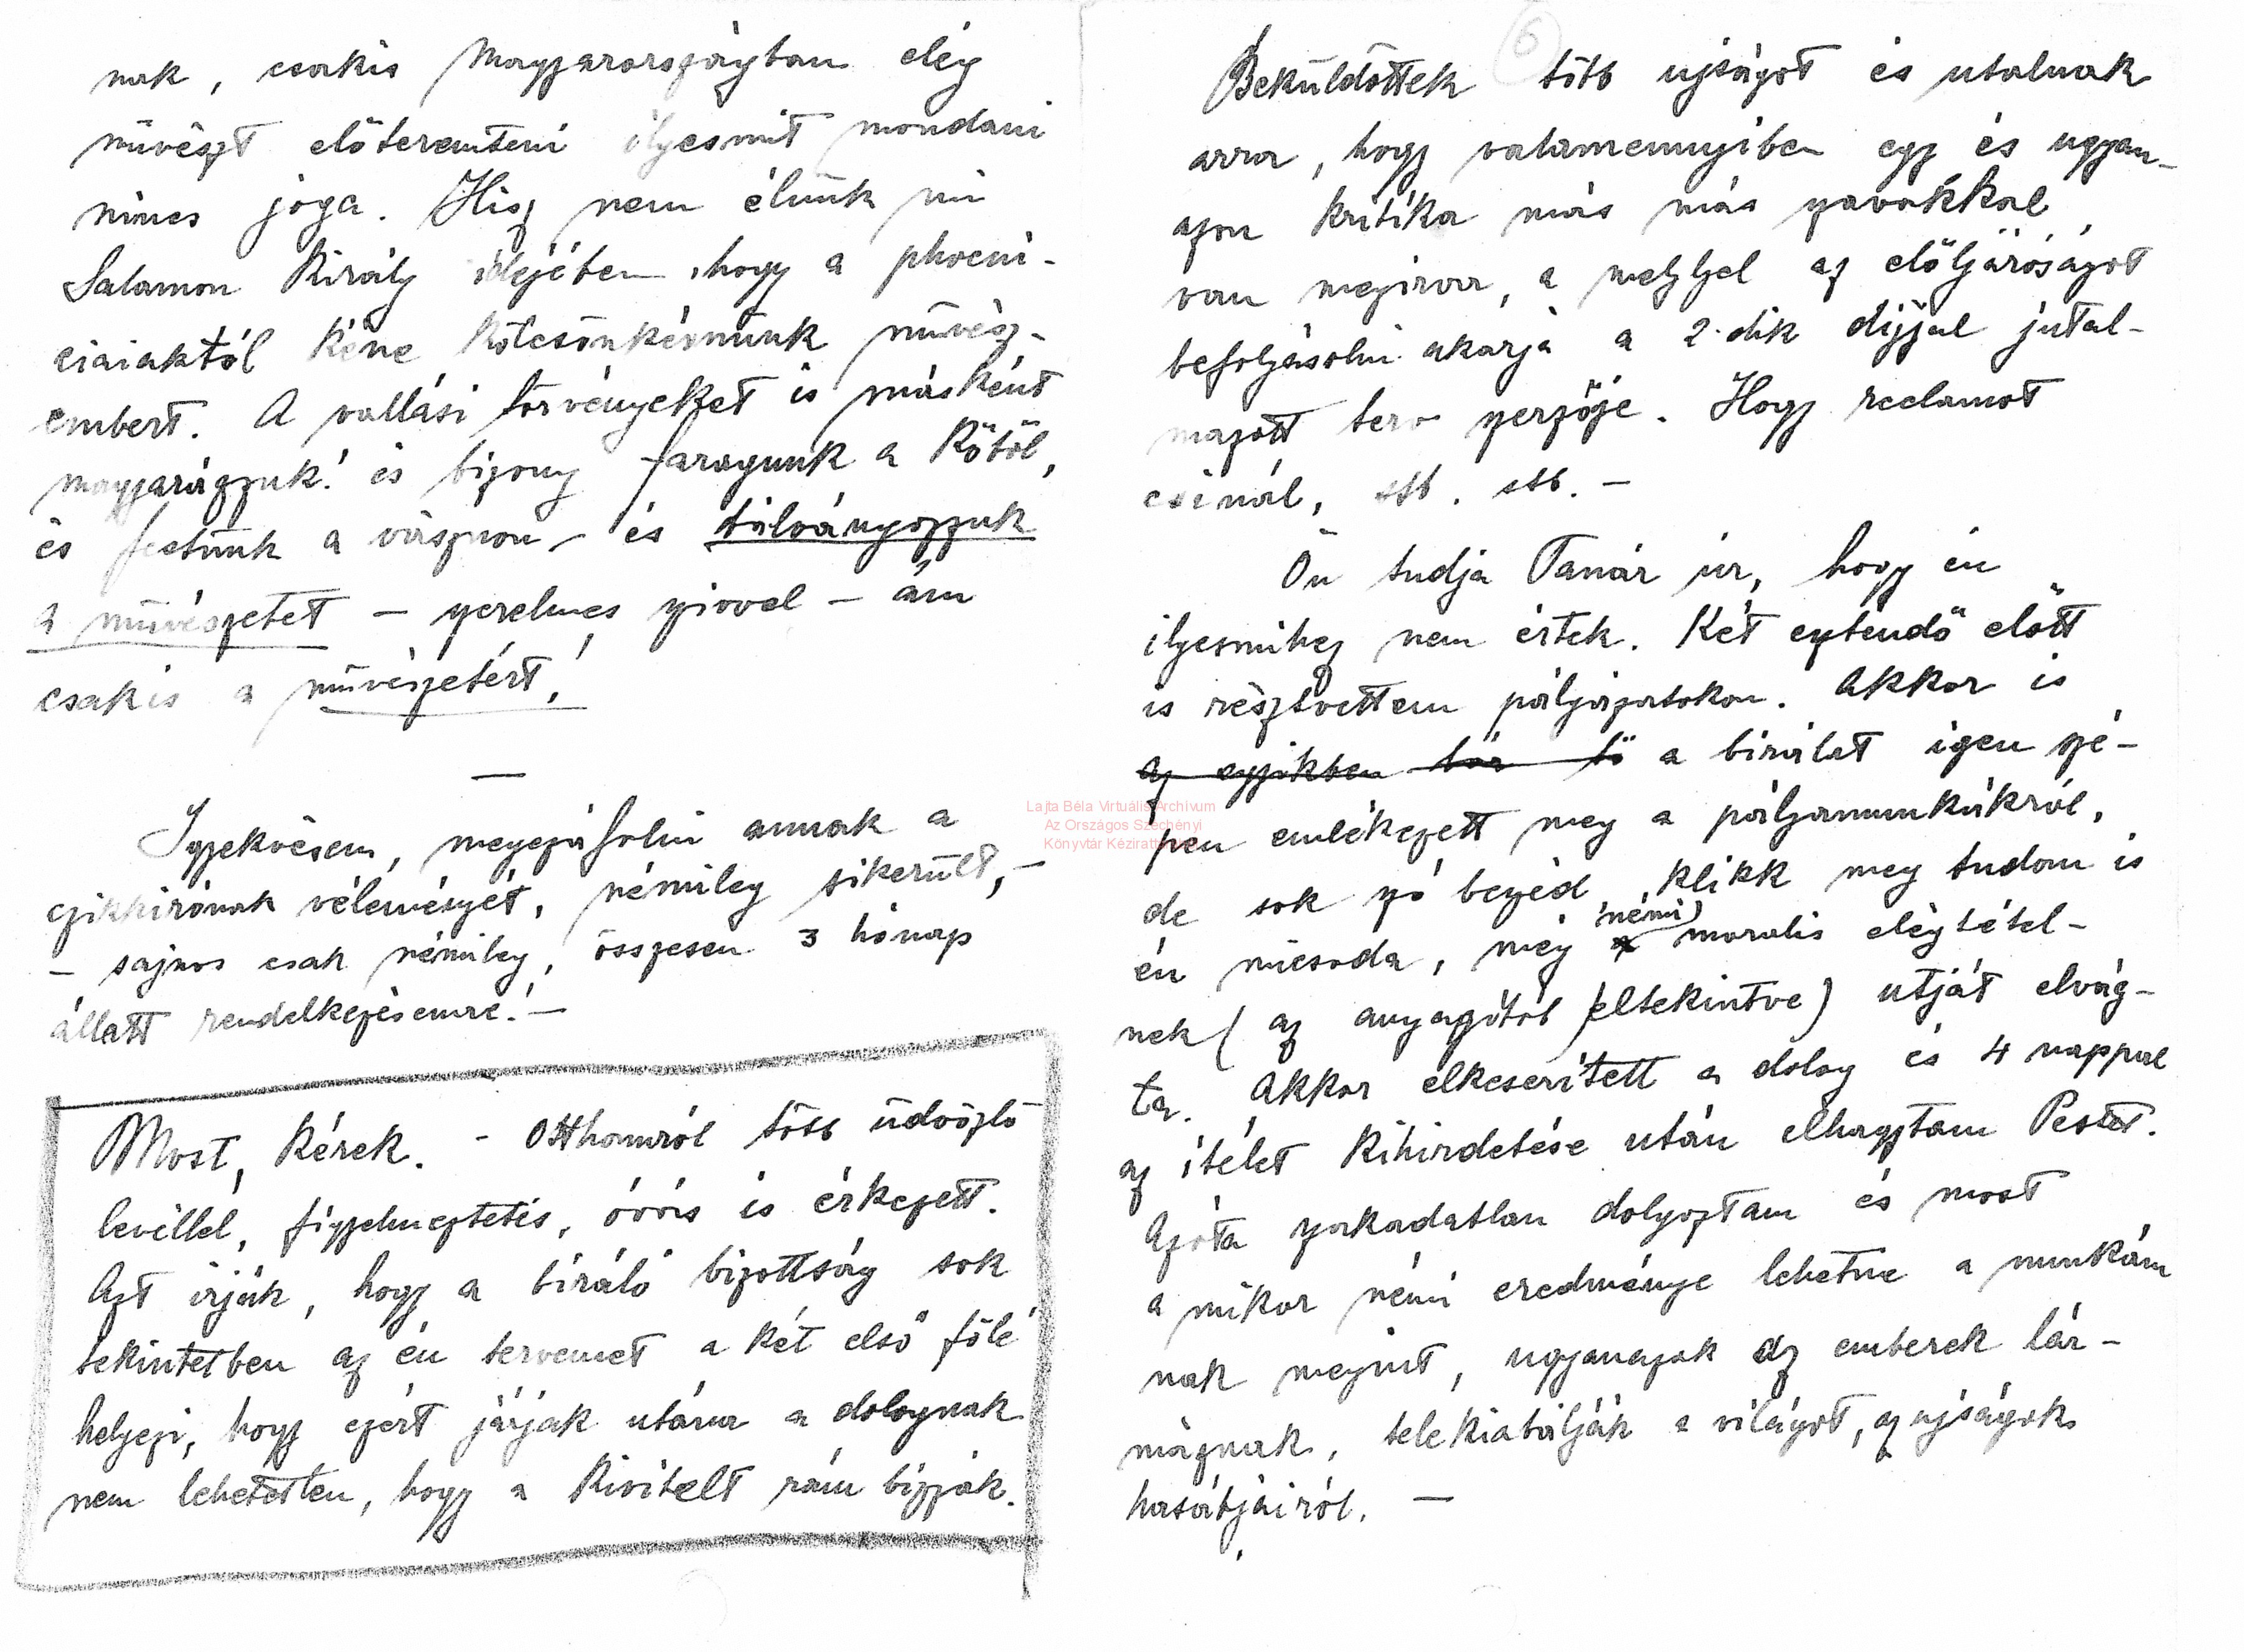 nak, csakis Magyarországban elég
művészt előteremteni ilyesmit mondani
nincs joga. Hisz nem élünk mi
Salamon Király idejében, hogy a phoeni-
ciaiaktól kéne kölcsönkérnünk művész-
embert. A vallási törvényeket is másként
magyarázzuk! és bizony faragunk a kőből,
és festünk a vásznon – és bálványozzuk
a művészetet – szerelmes szivvel – ám
csakis a művészetért!
—
Igyekvésem, megczáfolni annak a
czikkirónak véleményét, némileg sikerült, –
– sajnos csak némileg, összesen 3 hónap
állott rendelkezésemre! –
Most, kérek. - Otthonról több üdvözlő
levéllel, figyelmeztetés, óvás is érkezett.
Azt irják, hogy a biráló bizottság sok
tekintetben az én tervemet a két első fölé
helyezi, hogy ezért járjak utána a dolognak
nem lehetetlen, hogy a kivitelt rám bizzák.
6
Beküldöttek több ujságot és utalnak
arra, hogy valamennyiben egy és ugyan-
azon kritika más más szavakkal
van megirva, a melylyel az előljáróságot
befolyásolni akarja a 2-dik díjjal jutal-
mazott terv szerzője. Hogy reclamot
csinál, stb. stb. –
Ön tudja Tanár úr, hogy én
ilyesmihez nem értek. Két esztendő előtt
is résztvettem pályázatokon. Akkor is
az egyikben a birálat igen szé-
pen emlékezett meg a pályamunkákról,
de sok szó beszéd, klikk meg tudom is
én micsoda, még némi moralis elégtétel-
nek (az anyagitól eltekintve) utját elvág-
ta. Akkor elkeserített a dolog és 4 nappal
az ítélet kihirdetése után elhagytam Pestet.
Azóta szakadatlan dolgoztam és most
a mikor némi eredménye lehetne a munkám
nak megint, ugyanazok az emberek lár-
máznak, telekiabálják a világot, az ujságok
hasábjairól. –
Lajta Béla Virtuális Archívum
Az Országos Széchényi